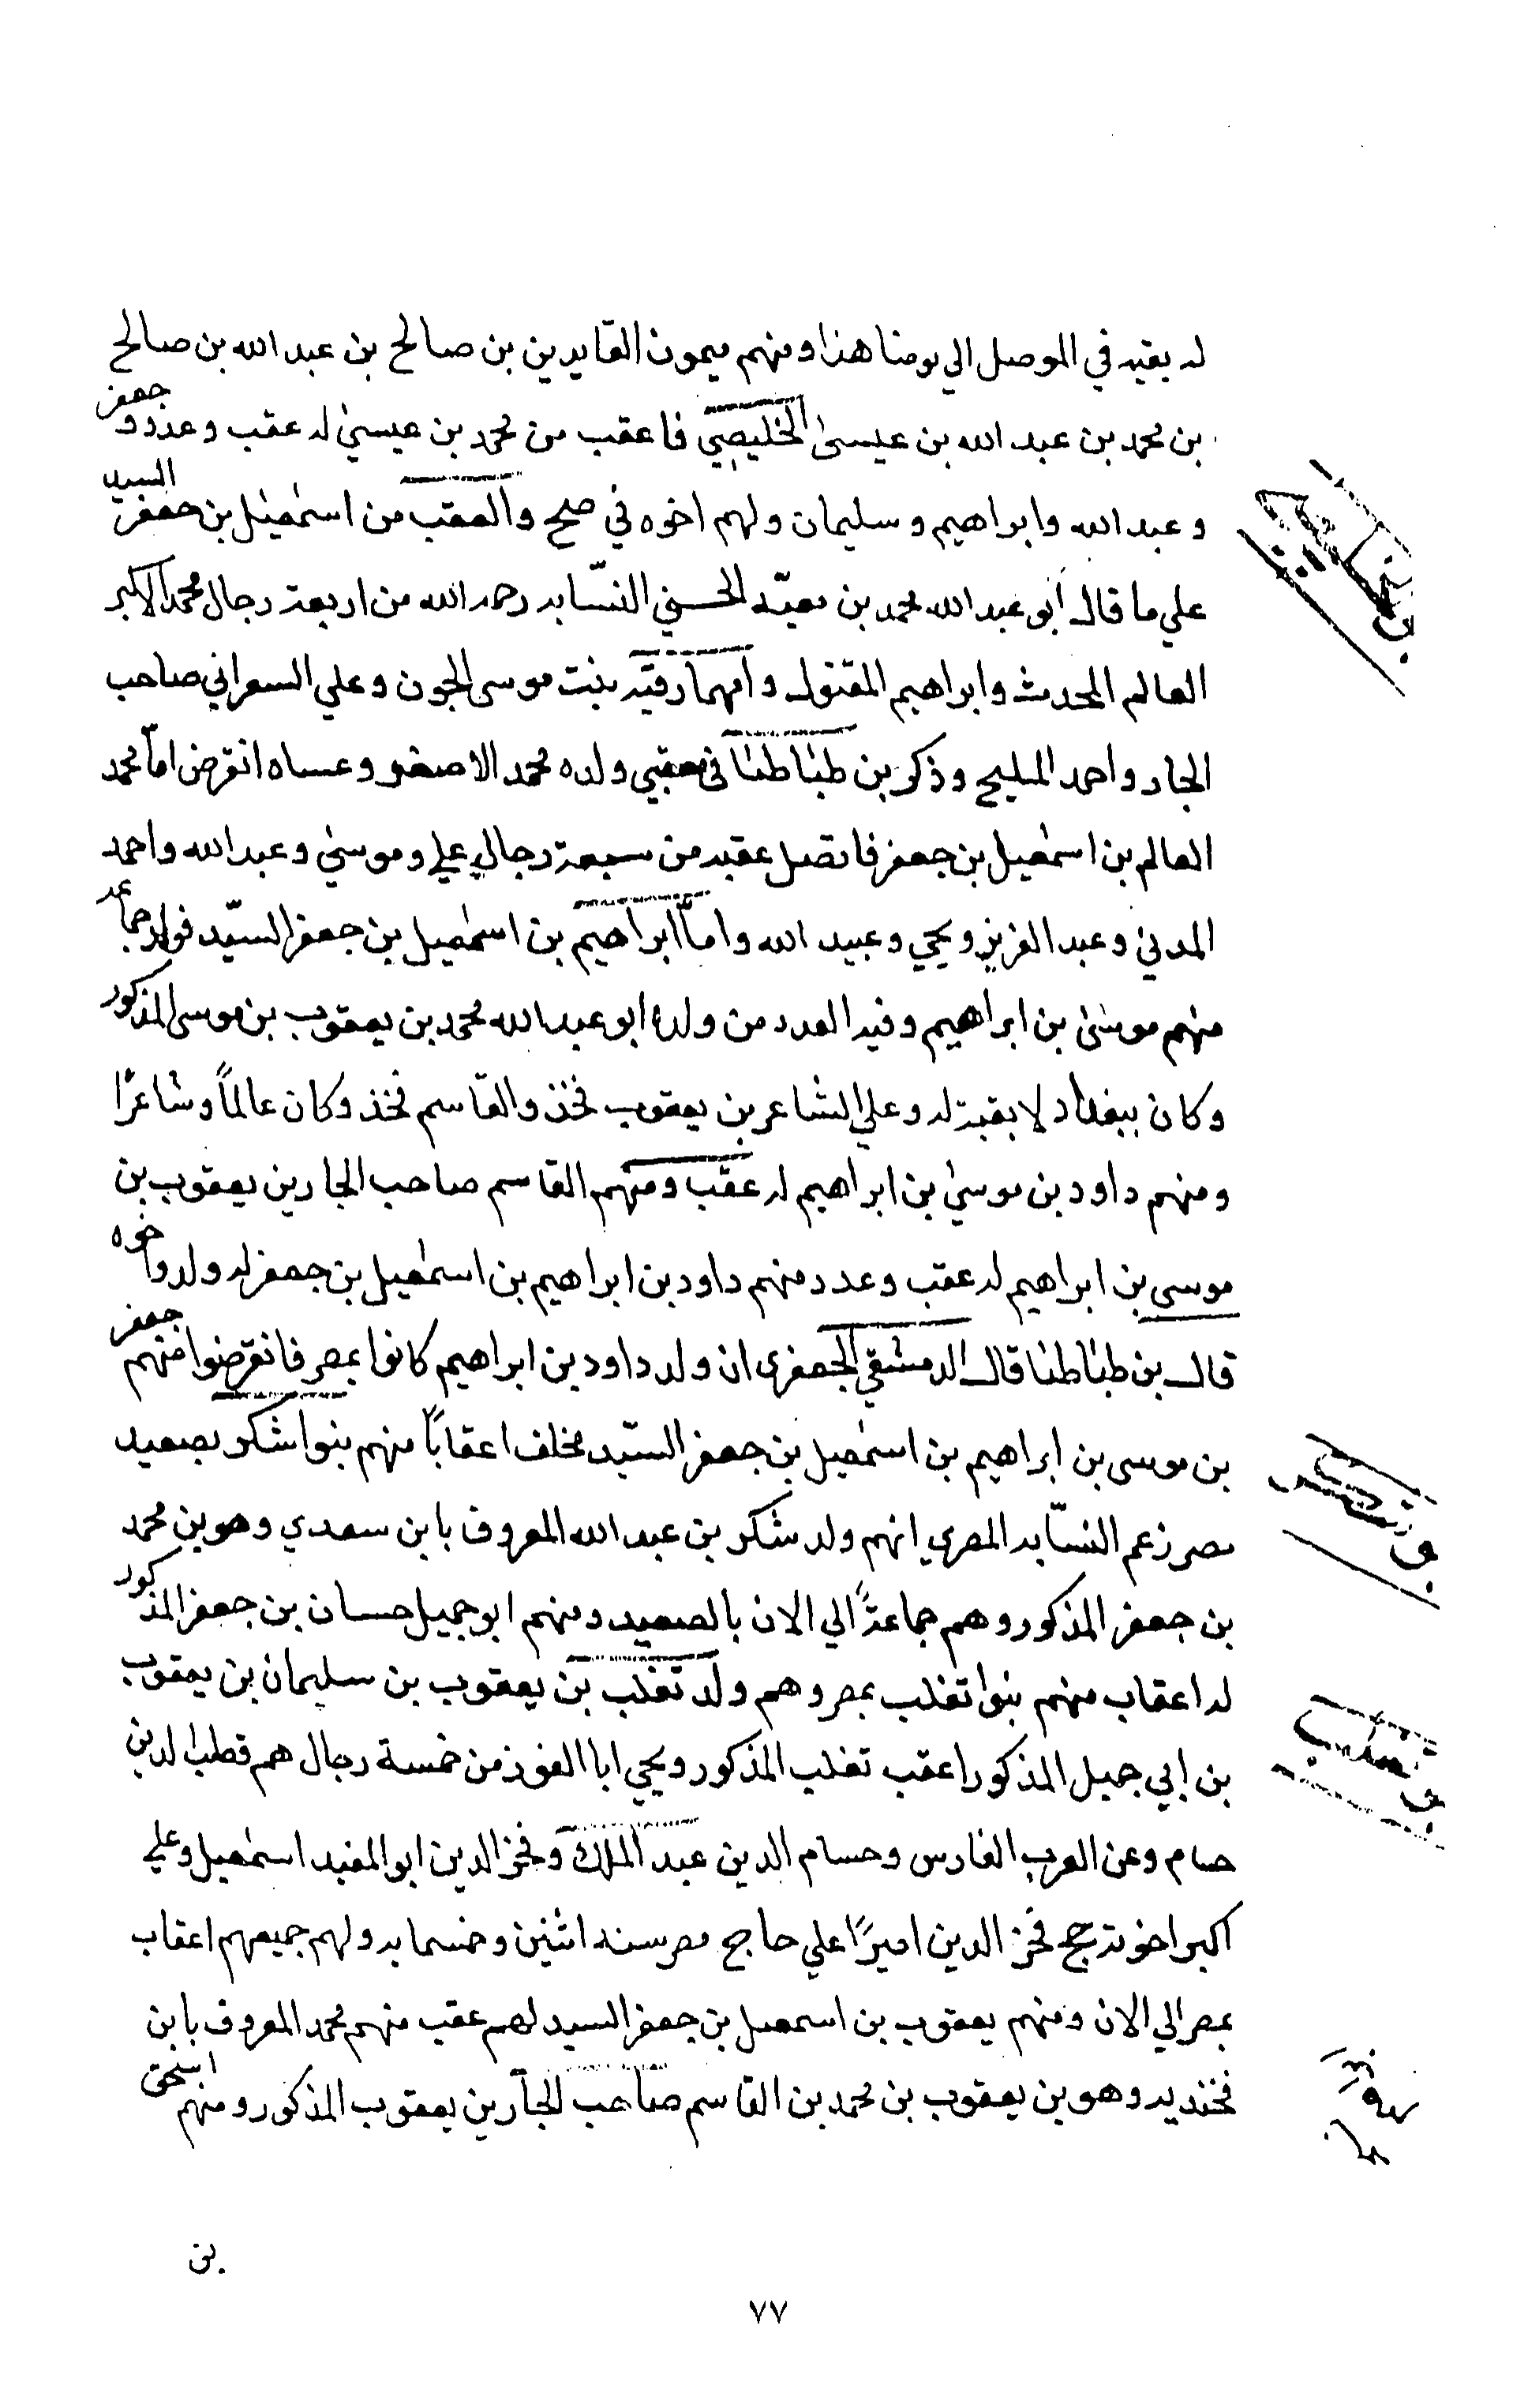 له بقيه في الموصل الي يومنا هذا ومنهم ميمون القايد بن بن صالح بن عبد الله بن صالح
بن محمد بن عبد الله بن عيسى الخليصي فاعقب من محمد بن عيسىٰ له عقب وعدد و جعفر
وعبد الله وابراهيم وسليمان ولهم اخوه في صح والعقب من اسمٰعيل بن جعفر السيد
علي ما قال أبو عبد الله محمد بن معيّه الحسني النسّابه رحمه الله من اربعة رجال محمد الاكبر
العالم المحدث وابراهيم المقتول وامهما رقيّه بنت موسى الجون وعلي الشعراني صاحب
الجار واحمد المليح وذكر بن طباطبا في معقبي ولده محمد الاصغر وعساه انقرض امّا محمد
العالم بن اسمٰعيل بن جعفر فاتصل عقبه من سبعة رجال علي وموسىٰ وعبد الله واحمد
المدني وعبد العزيز ويحيي وعبيد الله وامّا ابراهيم بن اسمٰعيل بن جعفر السيّد فولد جماعه
منهم موسىٰ بن ابراهيم وفيه العدد من ولده ابو عبد الله محمد بن يعقوب بن موسى المذكور
وكان ببغداد لا بقية له وعلي الشاعر بن يعقوب فخذ والقاسم فخذ وكان عالماً وشاعرًا
ومنهم داود بن موسىٰ بن ابراهيم له عقب ومنهم القاسم صاحب الجار بن يعقوب بن
موسى بن ابراهيم له عقب وعدد منهم داود بن ابراهيم بن اسمٰعيل بن جعفر له ولد واخوه
قال بن طباطبا قال الدمشقي الجعفرى ان ولد داود بن ابراهيم كانوا بمصر فانقرضوا منهم جعفر
بن موسى بن ابراهيم بن اسمٰعيل بن جعفر السيّد مخلف اعقاباً منهم بنوا شكر بصعيد
مصر زعم النسّابه المصري انهم ولد شكر بن عبد الله المعروف بابن سعدي وهو بن محمد
بن جعفر المذكور وهم جماعةً الي الان بالصعيد ومنهم ابو جميل حسان بن جعفر المذكور
له اعقاب منهم بنوا تغلب بمصر وهم ولد تغلب بن يعقوب بن سليمان بن يعقوب
بن ابي جميل المذكور اعقب تغلب المذكور ويحيي ابا الفوز من خمسة رجال هم قطب الدين
حسام وعز العرب الفارس وحسام الدين عبد الملك وفخر الدين ابو المفيد اسمٰعيل وعلي
اكبر اخوته حج فخر الدين اميرًا علي حاج مصر سنه اثنين وخمسمايه ولهم جميعهم اعقاب
بمصر الي الان ومنهم يعقوب بن اسمعيل بن جعفر السيد لهم عقب منهم محمد المعروف بابن
فخنديه وهو بن يعقوب بن محمد بن القاسم صاحب الجار بن يعقوب المذكور ومنهم اسحق
بن
٧٧